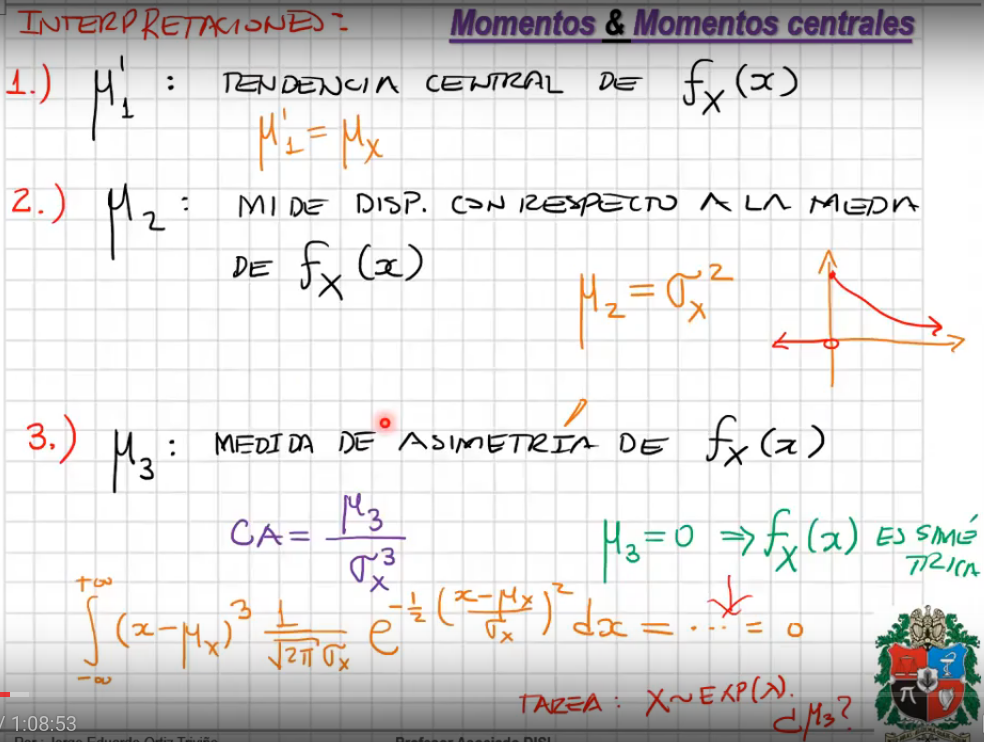 INTERPRETACIONES:
Momentos & Momentos centrales
1.) μ'₁ : TENDENCIA CENTRAL DE f_X(x)
μ'₁ = μ_X
2.) μ₂ : MIDE DISP. CON RESPECTO A LA MEDIA
DE f_X(x)
μ₂ = σ_X²
3.) μ₃ : MEDIDA DE ASIMETRÍA DE f_X(x)
CA = μ₃/σ_X³
μ₃ = 0 ⇒ f_X(x) ES SIMÉ
TRICA
∫_{-∞}^{+∞} (x-μ_X)³ 1/(√2π σ_X) e^{-1/2 ((x-μ_X)/σ_X)²} dx = ... = 0
TAREA: X~EXP(λ).
¿μ₃?
/ 1:08:53
Por: Jorge Eduardo Ortiz Triviño
Profesor Asociado DISI